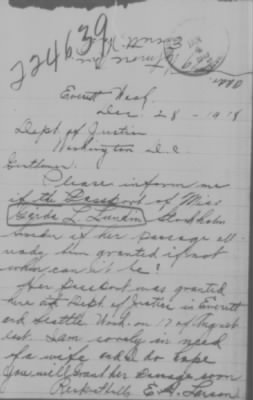 224639
Everett Wash.
Dec. 28 - 1918
Dept of Justice
Washington D.C.
Gentlemen.
Please inform me
if the Passport of Miss
Gerda L. Lundin Stockholm
Sweden if her passage all-
ready been granted if not
when can it be!
Her Passport was granted
here at Dept. of Justice in Everett
and Seattle Wash. on 17 of August
last. I am sorely in need
of a wife and I do hope
you will grant her passage soon
Respectfully E. A. Larson